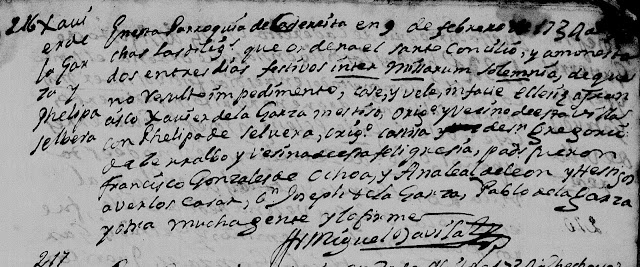 216 Xavi
er de
la Gar
za y
Phelipa
Selbera
En esta Parroquia de Cadereita en 9 de febrero de 1730 a. he
chas las dilig.s que ordena el santo Concilio, y amonesta
dos en tres dias festivos inter Missarum solemnia, de que
no resulto impedimento, case, y vele in facie Eclesiæ a Fran
cisco Xavier de la Garza mestiso, orig.o y Vecino de esta Villa
con Phelipa de Selvera, orig.a de S.n Gregorio
de Zerralbo y Vesina de esta feligresia, pad.s fueron
Francisco Gonzales de Ochoa, y Ana Leal de Leon y
a verlos casar, D.n Joseph de la Garza, Pablo de la Garza
y otra mucha gente y lo firme
Miguel Davila
217